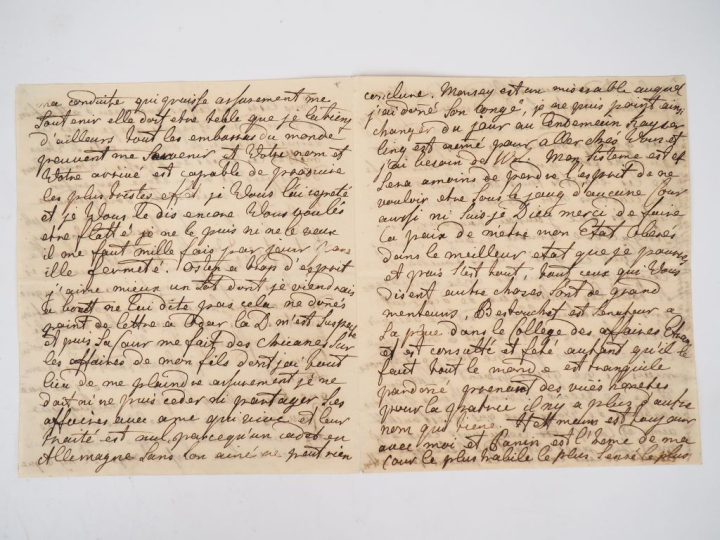 ma conduite qui puisse assurement me
soutenir elle doit etre telle que je la tiens
d'ailleurs tout les embarras du monde
peuvent me survenir et Votre nom et
Votre arrivé est capable de produire
les plus tristes effets je Vous l'ai repeté
et je Vous le dis encore Vous voulés
etre flatté je ne le puis ni ne le veux
il me faut mille fois par jour
ille fermeté. Osten a trop d'esprit
j'aime mieux un sot dont je viendrais
a bout ne lui dite pas cela ne donés
point de lettre à la D. m'est suspecte
et puis sa sœur me fait des chicanes sur
les affaires de mon fils dont j'ai tout
lieu de me plaindre assurement je ne
dois ni ne puis ceder ou partager ses
affaires avec ame qui vive et leur
traité est nul parcequ'un cadet en
Allemagne sans son ainé ne peut rien
conclure. Mousay est un miserable auquel
j'ai doné son congé, je ne puis point ainsi
changer du jour au lendemain Kayser
ling est nomé pour aller chés Vous et
j'ai besoin de W. Mon sisteme est et
sera amoins de perdre l'esprit de ne
vouloir etre sous le joug d'aucune cour
aussi ni suis-je Dieu merci de faire
la paix de metre mon Etat obéré
dans le meilleur etat que je pourrés
et puis s'est tout, tout ceux qui Vous
disent autre choses sont de grand
menteurs, Bestouchef est Senateur a
sa place dans le College des affaires Etran
et est consulté et feté autant qu'il le
faut tout le monde est tranquile
pardoné prenant des vuës honetes
pour la patrie il ny a plus d'autre
nom qui tiene. Hettmann est toujour
avec moi et Panin est l'home de ma
cour le plus habile le plus sensé le plus